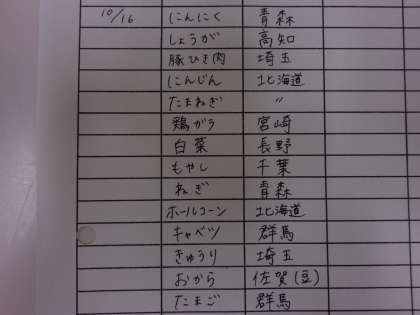 10/16 にんにく 青森
しょうが 高知
豚ひき肉 埼玉
にんじん 北海道
たまねぎ 〃
鶏がら 宮崎
白菜 長野
もやし 千葉
ねぎ 青森
ホールコーン 北海道
キャベツ 群馬
きゅうり 埼玉
おから 佐賀(豆)
たまご 群馬